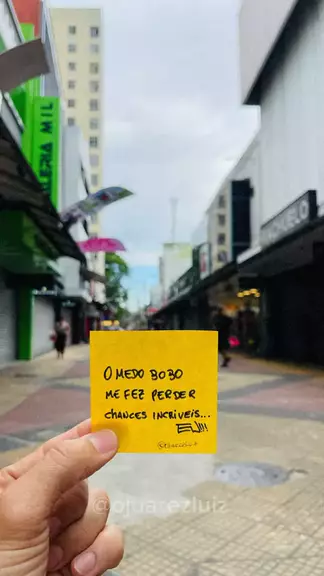 ERIA MIL
CHUELO
O MEDO BOBO
ME FEZ PERDER
CHANCES INCRÍVEIS...
EU!!!
@ojuarezluiz